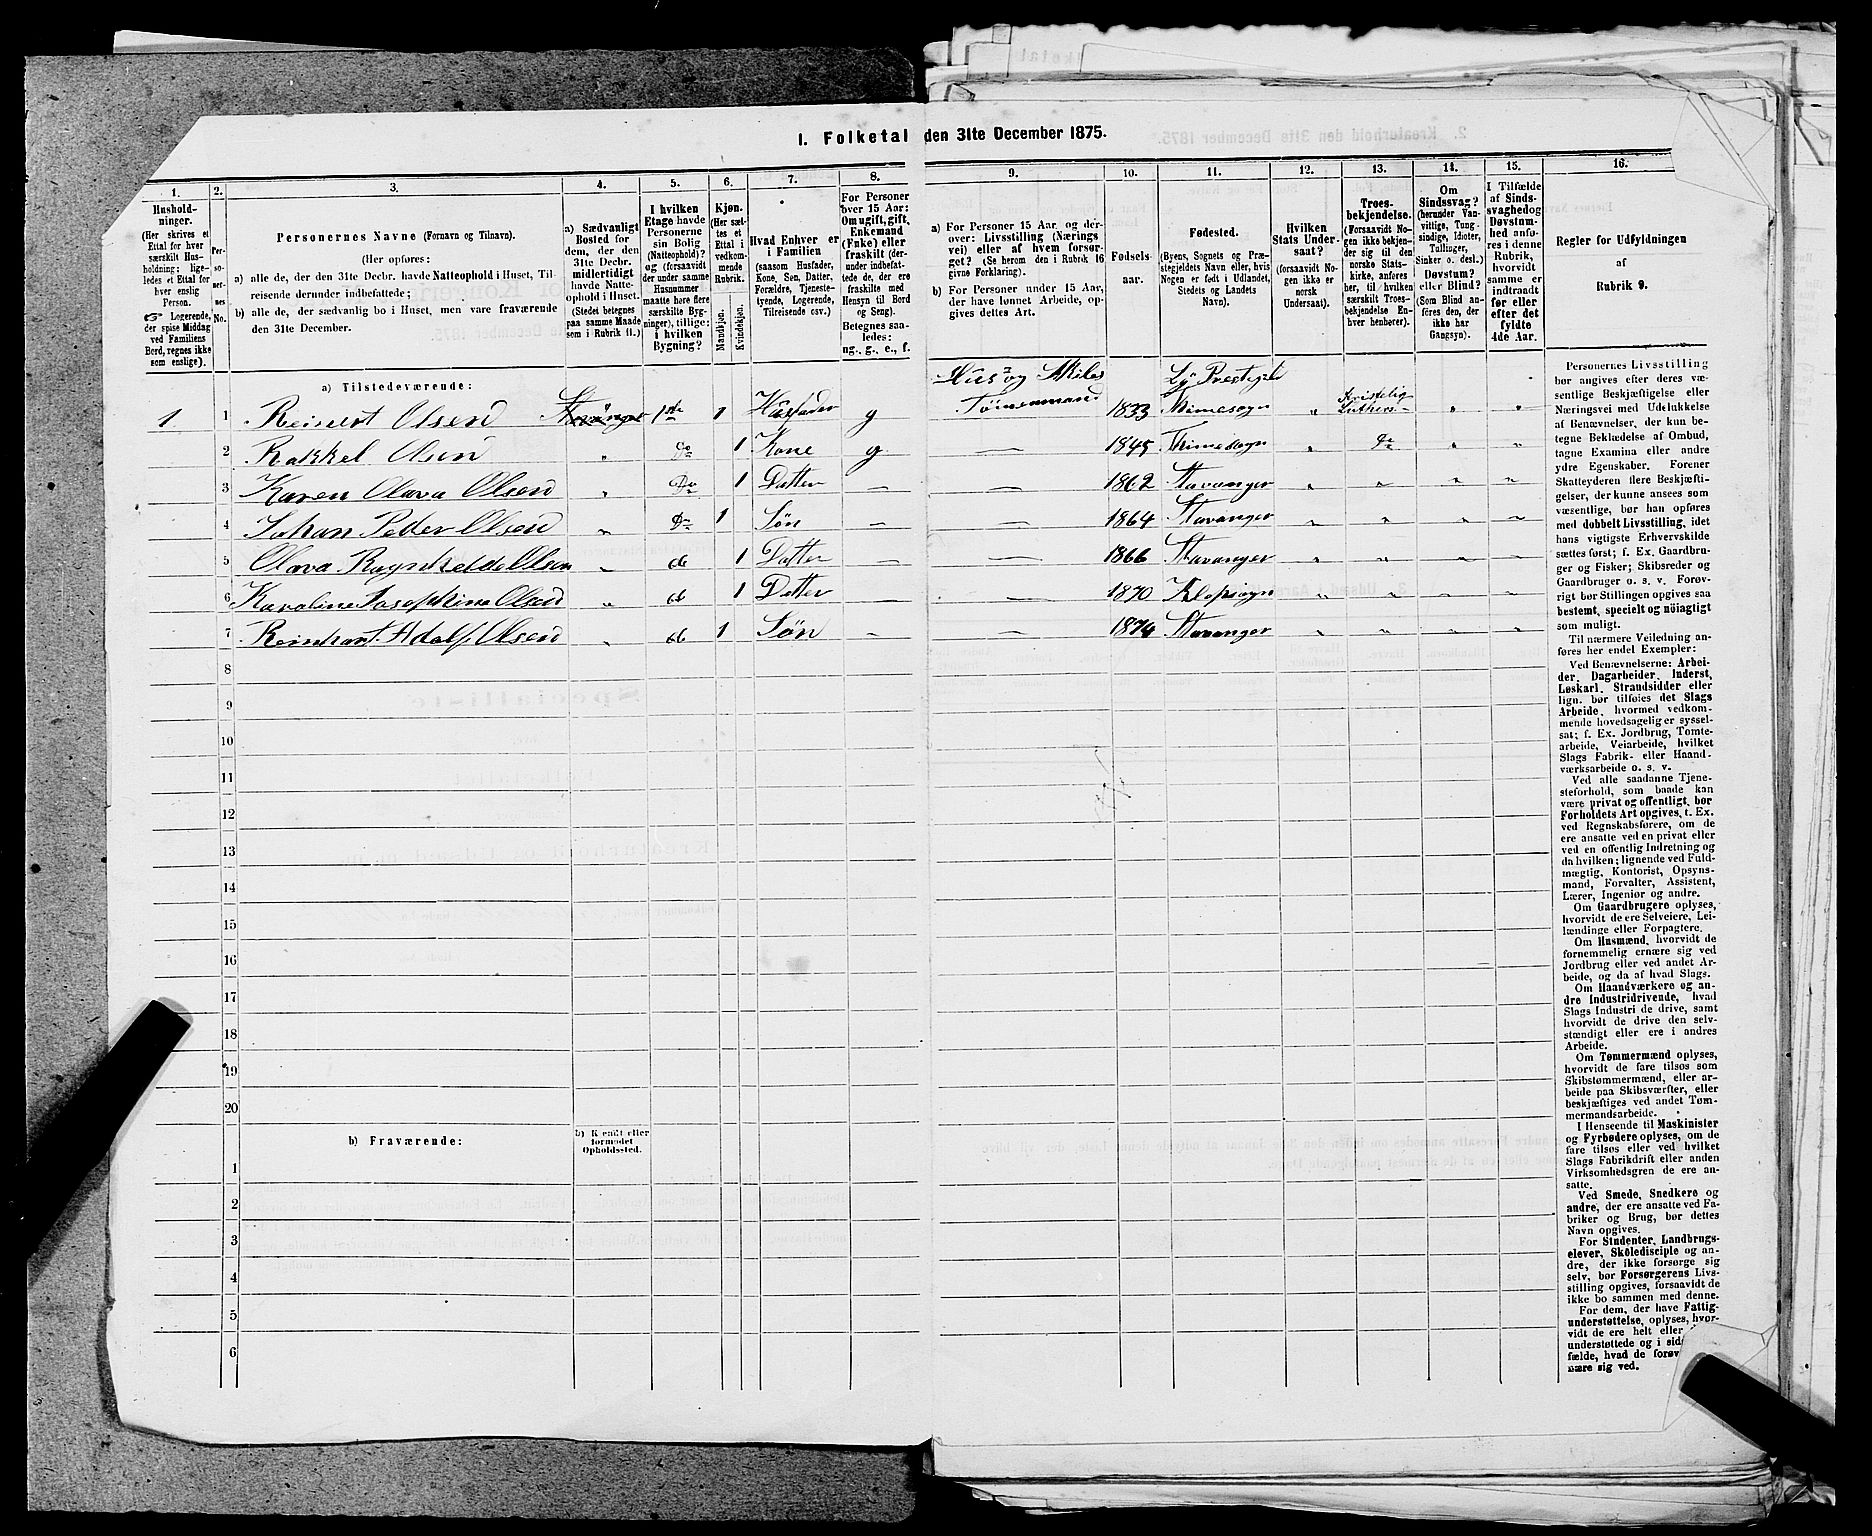 1. Folketal den 31te December 1875.
1. 2. 3. 4. 5. 6. 7. 8. 9. 10. 11. 12. 13. 14. 15. 16.
Hushold-
ninger.
(Her skrives et
Ettal for hver
særskilt Hus-
holdning; lige-
ledes et Ettal for
hver enslig
Person.
☞ Logerende,
der spise Middag
ved Familiens
Bord, regnes ikke
som enslige).
Per-
so-
ner-
nes
No.
Personernes Navne (Fornavn og Tilnavn).
(Her opføres:
a) alle de, der den 31te Decbr. havde Natteophold i Huset, Til-
reisende derunder indbefattede;
b) alle de, der sædvanlig bo i Huset, men vare fraværende
den 31te December.
a) Sædvanligt
Bosted for
dem, der den
31te Decbr.
midlertidigt
havde Natte-
ophold i Huset.
(Stedet betegnes
paa samme Maade
som i Rubrik 11.)
I hvilken
Etage havde
Personerne
sin Bolig
(Natteophold)?
og (forsaavidt
der under samme
Husnummer
maatte høre flere
særskilte Byg-
ninger), tillige:
i hvilken
Bygning?
Kjøn.
(Her sæt-
tes et
Ettal i
vedkom-
mende
Rubrik.
Mandkjøn.
Kvindekjøn.
Hvad Enhver er
i Familien
(saasom Husfader,
Kone, Søn, Datter,
Forældre, Tjeneste-
tyende, Logerende,
Tilreisende osv.)
For Personer
over 15 Aar:
Om ugift, gift,
Enkemand
(Enke) eller
fraskilt (der-
under indbefat-
tede de, der ere
fraskilte med
Hensyn til Bord
og Seng).
Betegnes saa-
ledes:
ug., g., e., f.
a) For Personer 15 Aar og der-
over: Livsstilling (Nærings-
vei) eller af hvem forsør-
get? (Se herom den i Rubrik 16
givne Forklaring).
b) For Personer under 15 Aar,
der have lønnet Arbeide, op-
gives dettes Art.
Fødsels-
aar.
Fødested.
(Byens, Sognets og Præ-
stegjeldets Navn eller, hvis
Nogen er født i Udlandet,
Stedets og Landets
Navn).
Hvilken
Stats Under-
saat?
(forsaavidt No-
gen ikke er
norsk
Undersaat).
Troes-
bekjendelse.
(Forsaavidt No-
gen ikke bekjen-
der sig til den
norske Stats-
kirke, anføres
her, til hvilken
særskilt Troes-
bekjendelse En-
hver henhører).
Om
Sindssvag?
(herunder Van-
vittige, Tung-
sindige, Idioter,
Tullinger,
Sinker o. desl.)
Døvstum?
eller Blind?
(Som Blind an-
føres den, der
ikke har
Gangsyn).
I Tilfælde
af Sinds-
svaghed og
Døvstum-
hed anfø-
res i denne
Rubrik,
hvorvidt
samme er
indtraadt
før eller
efter det
fyldte
4de Aar.
Regler for Udfyldningen
af
Rubrik 9.
a) Tilstedeværende:
1 1 Reinert Olsen Stavanger 1ste 1 Husfader g Tømmermand 1833 Lÿ Prestegjeld Thimesogn " Kristelig Luthers- " "
2 Rakkel Olsen " Do 1 Kone g — 1845 Thimesogn " Do " "
3 Karen Olava Olsen " Do 1 Datter — — 1862 Stavanger " " " "
4 Johan Peder Olsen " Do 1 Søn — — 1864 Stavanger " " " "
5 Olava Ragnhelde Olsen " do 1 Datter — — 1866 Stavanger " " " "
6 Karoline Josephine Olsen " do 1 Datter — — 1870 Klepsogn " " " "
7 Reinhart Adolf Olsen " do 1 Søn — — 1874 Stavanger " " " "
8
9
10
11
12
13
14
15
16
17
18
19
20
b) Fraværende:
b) Kjendt eller
formodet
Opholdssted.
1
2
3
4
5
6
Personernes Livsstilling
bør angives efter deres væ-
sentlige Beskjæftigelse eller
Næringsvei med Udelukkelse
af Benævnelser, der kun be-
tegne Beklædelse af Ombud,
tagne Examina eller andre
ydre Egenskaber. Forener
Skatteyderen flere Beskjæfti-
gelser, der kunne ansees som
væsentlige, bør han opføres
med dobbelt Livsstilling, idet
hans vigtigste Erhvervskilde
sættes først; f. Ex. Gaardbru-
ger og Fisker; Skibsreder og
Gaardbruger o. s. v. Forøv-
rigt bør Stillingen opgives saa
bestemt, specielt og nöiagtigt
som muligt.
Til nærmere Veiledning an-
føres her endel Exempler:
Ved Benævnelserne: Arbei-
der, Dagarbeider, Inderst,
Løskarl, Strandsidder eller
lign. bør tilføies det Slags
Arbeide, hvormed vedkom-
mende hovedsagelig er syssel-
sat; f. Ex. Jordbrug, Tomte-
arbeide, Veiarbeide, hvilket
Slags Fabrik- eller Haand-
værksarbeide o. s. v.
Ved alle saadanne Tjene-
steforhold, som baade kan
være privat og offentligt, bør
Forholdets Art opgives, t. Ex.
ved Regnskabsførere, om de
ere ansatte ved en privat eller
ved en offentlig Indretning og
da hvilken; lignende ved Fuld-
mægtig, Kontorist, Opsyns-
mand, Forvalter, Assistent,
Lærer, Ingeniør og andre.
Om Gaardbrugere oplyses,
hvorvidt de ere Selveiere, Lei-
lændinge eller Forpagtere.
Om Husmænd, hvorvidt de
fornemmelig ernære sig ved
Jordbrug eller ved andet Ar-
beide, og da af hvad Slags.
Om Haandværkere og an-
dre Industridrivende, hvad
Slags Industri de drive, samt
hvorvidt de drive den selv-
stændigt eller ere i andres
Arbeide.
Om Tømmermænd oplyses,
hvorvidt de fare tilsøs som
Skibstømmermænd, eller ar-
beide paa Skibsværfter, eller
beskjæftiges ved andet Tøm-
mermandsarbeide.
I Henseende til Maskinister
og Fyrbødere oplyses, om de
fare tilsøs eller ved hvilket
Slags Fabrikdrift eller anden
Virksomhedsgren de ere an-
satte.
Ved Smede, Snedkere og
andre, der ere ansatte ved Fa-
briker og Brug, bør dettes
Navn opgives.
For Studenter, Landbrugs-
elever, Skoledisciple og an-
dre, der ikke forsørge sig
selv, bør Forsørgerens Livs-
stilling opgives, forsaavidt de
ikke bo sammen med denne.
For dem, der have Fattig-
understøttelse, oplyses, hvor-
vidt de ere helt eller
understøttede og i
fælde, hvad de
nære sig ved.